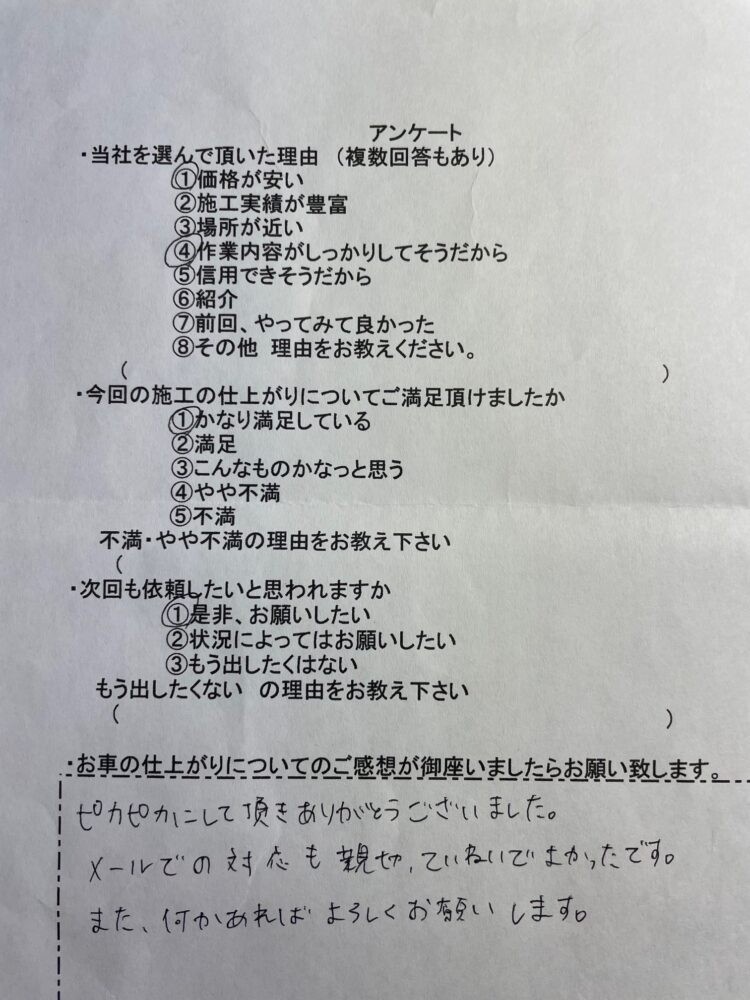 アンケート
・当社を選んで頂いた理由 （複数回答もあり）
①価格が安い
②施工実績が豊富
③場所が近い
④作業内容がしっかりしてそうだから
⑤信用できそうだから
⑥紹介
⑦前回、やってみて良かった
⑧その他 理由をお教えください。
( )
・今回の施工の仕上がりについてご満足頂けましたか
①かなり満足している
②満足
③こんなものかなっと思う
④やや不満
⑤不満
不満・やや不満の理由をお教え下さい
(
・次回も依頼したいと思われますか
①是非、お願いしたい
②状況によってはお願いしたい
③もう出したくはない
もう出したくない の理由をお教え下さい
( )
・お車の仕上がりについてのご感想が御座いましたらお願い致します。
ピカピカにして頂きありがとうございました。
メールでの対応も親切、ていねいでよかったです。
また、何かあればよろしくお願いします。